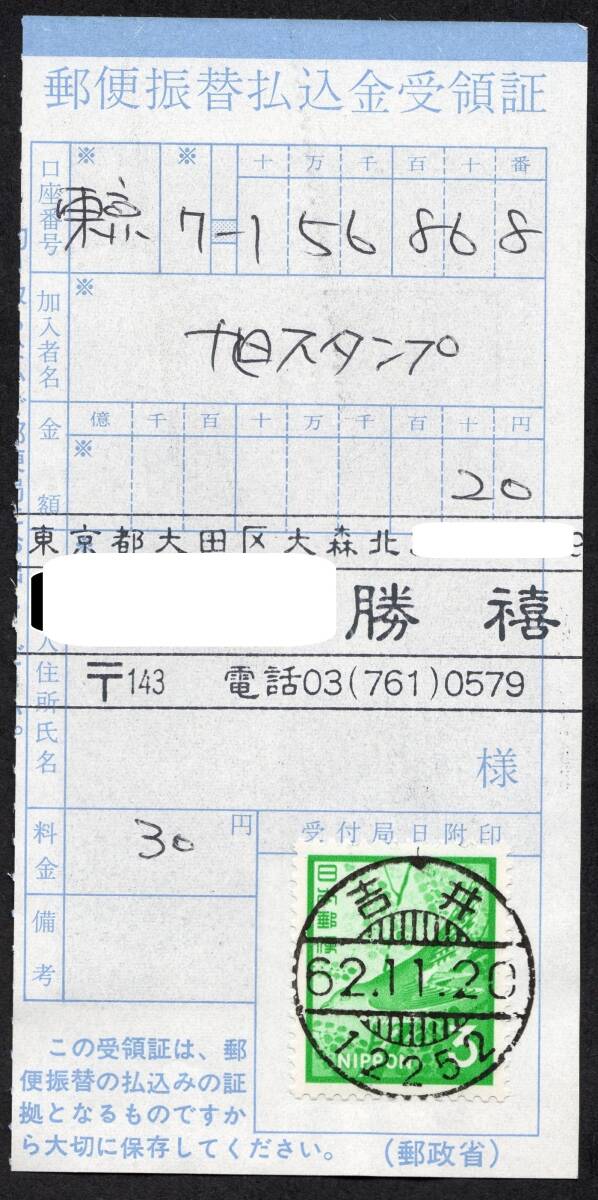 郵便振替払込金受領証
口座番号
※ ※ 十 万 千 百 十 番
東京 7-1 56868
加入者名
※
旭スタンプ
金額
億 千 百 十 万 千 百 十 円
※
20
東京都大田区大森北
勝 禧
〒143 電話03(761)0579
人住所氏名
様
料金
30 円
受付局日附印
備考
日本郵便
吉井
62.11.20
12252
NIPPON 3
この受領証は、郵
便振替の払込みの証
拠となるものですか
ら大切に保存してください。
(郵政省)